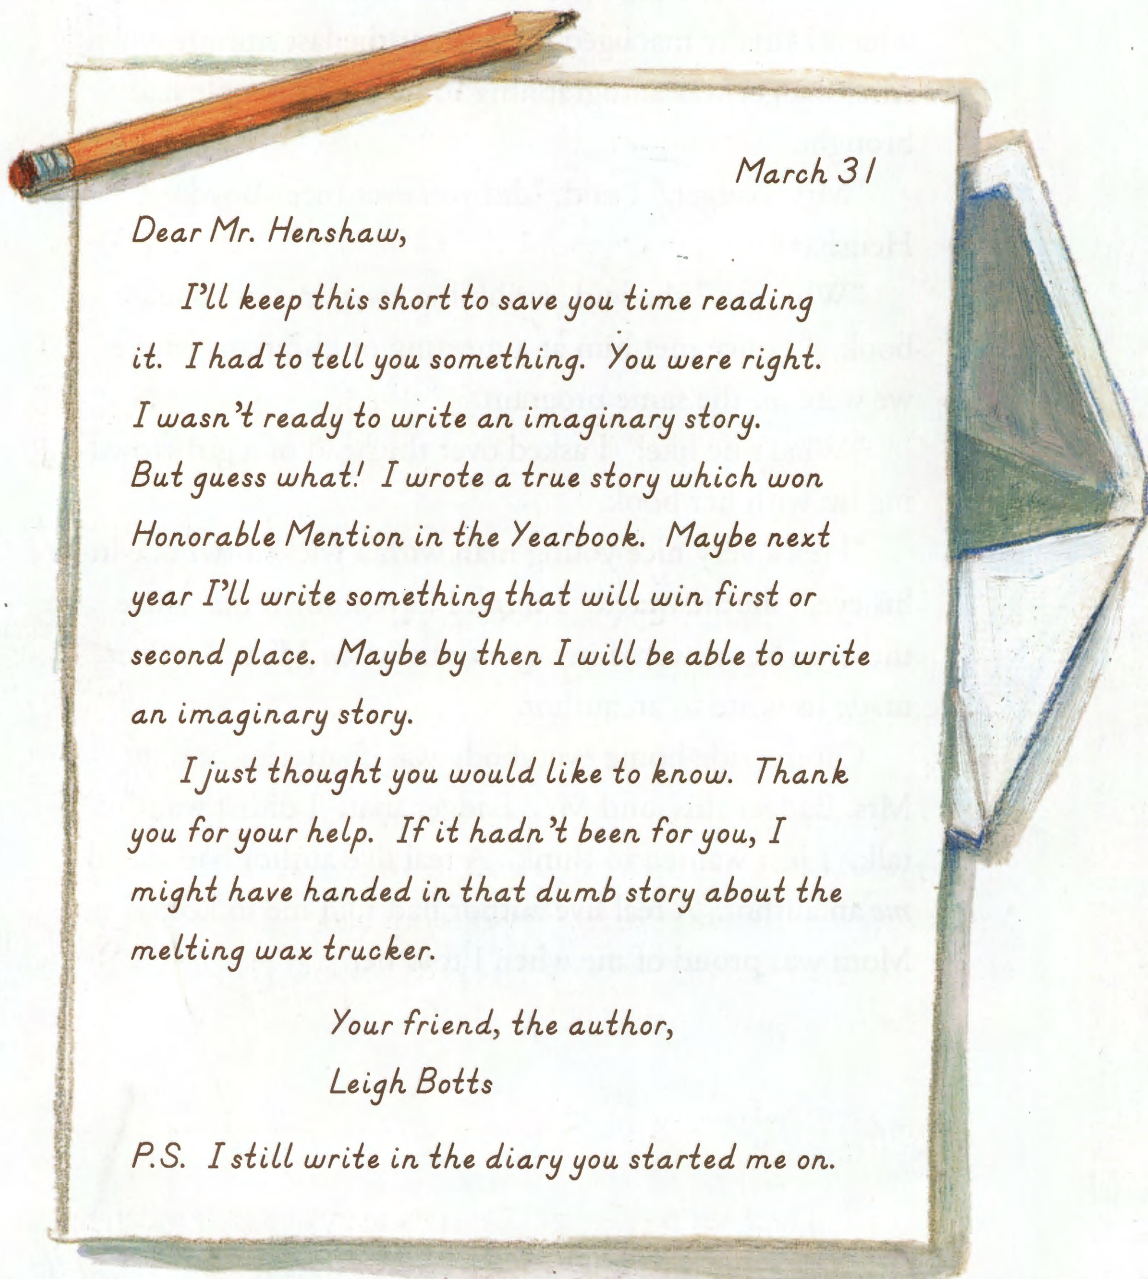 March 31
Dear Mr. Henshaw,
I'll keep this short to save you time reading
it. I had to tell you something. You were right.
I wasn't ready to write an imaginary story.
But guess what! I wrote a true story which won
Honorable Mention in the Yearbook. Maybe next
year I'll write something that will win first or
second place. Maybe by then I will be able to write
an imaginary story.
I just thought you would like to know. Thank
you for your help. If it hadn't been for you, I
might have handed in that dumb story about the
melting wax trucker.
Your friend, the author,
Leigh Botts
P.S. I still write in the diary you started me on.